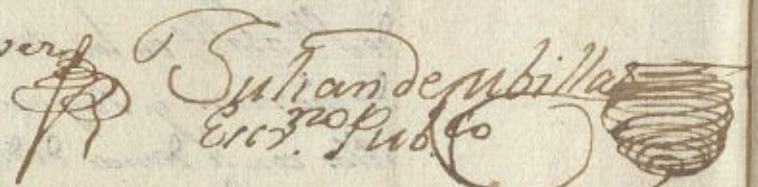 Julian de ubillas
Escr.no pub.co